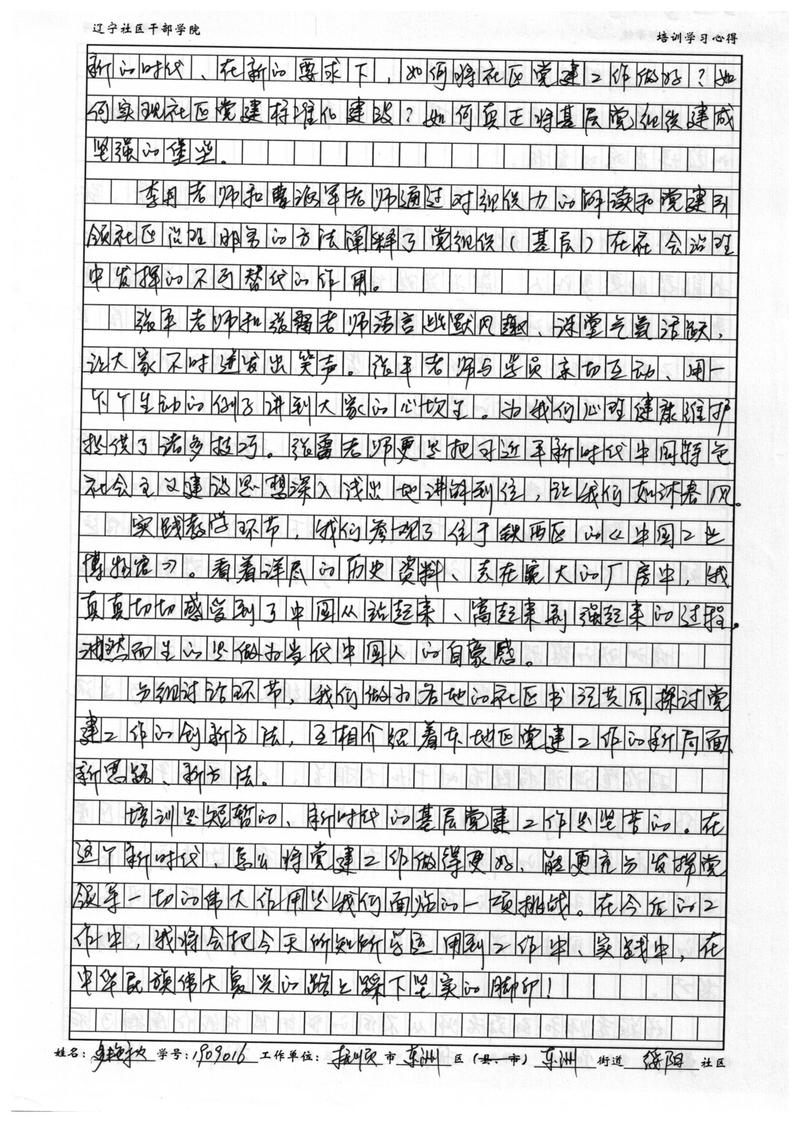 辽宁社区干部学院 培训学习心得
新的时代、在新的要求下,如何将社区党建工作做好?如
何实现社区党建标准化建设?如何真正将基层党组织建成
坚强的堡垒。
李丹老师和曹派军老师通过对组织力的解读和党建引
领社区治理服务的方法阐释了党组织(基层)在社会治理
中发挥的不可替代的作用。
张平老师和张雷老师语言幽默风趣、课堂气氛活跃,
让大家不时迸发出笑声。张平老师与学员亲切互动、用一
个个生动的例子讲到大家的心坎上。为我们心理健康维护
提供了诸多技巧。张雷老师更是把习近平新时代中国特色
社会主义建设思想深入浅出地讲解到位,让我们如沐春风。
实践教学环节,我们参观了位于铁西区的《中国工业
博物馆》。看着详尽的历史资料、走在庞大的厂房中,我
真真切切感受到了中国从站起来、富起来到强起来的过程。
油然而生的是做为当代中国人的自豪感。
分组讨论环节,我们做为各地的社区书记共同探讨党
建工作的创新方法,互相介绍着本地区党建工作的新局面、
新思路、新方法。
培训是短暂的、新时代的基层党建工作是坚苦的。在
这个新时代、怎么将党建工作做得更好、能更充分发挥党
领导一切的伟大作用是我们面临的一项挑战。在今后的工
作中,我将会把今天所知所学运用到工作中、实践中,在
中华民族伟大复兴的路上踩下坚实的脚印!
姓名: 学号:1909016 工作单位:抚顺市东洲区(县、市)东洲街道 社区